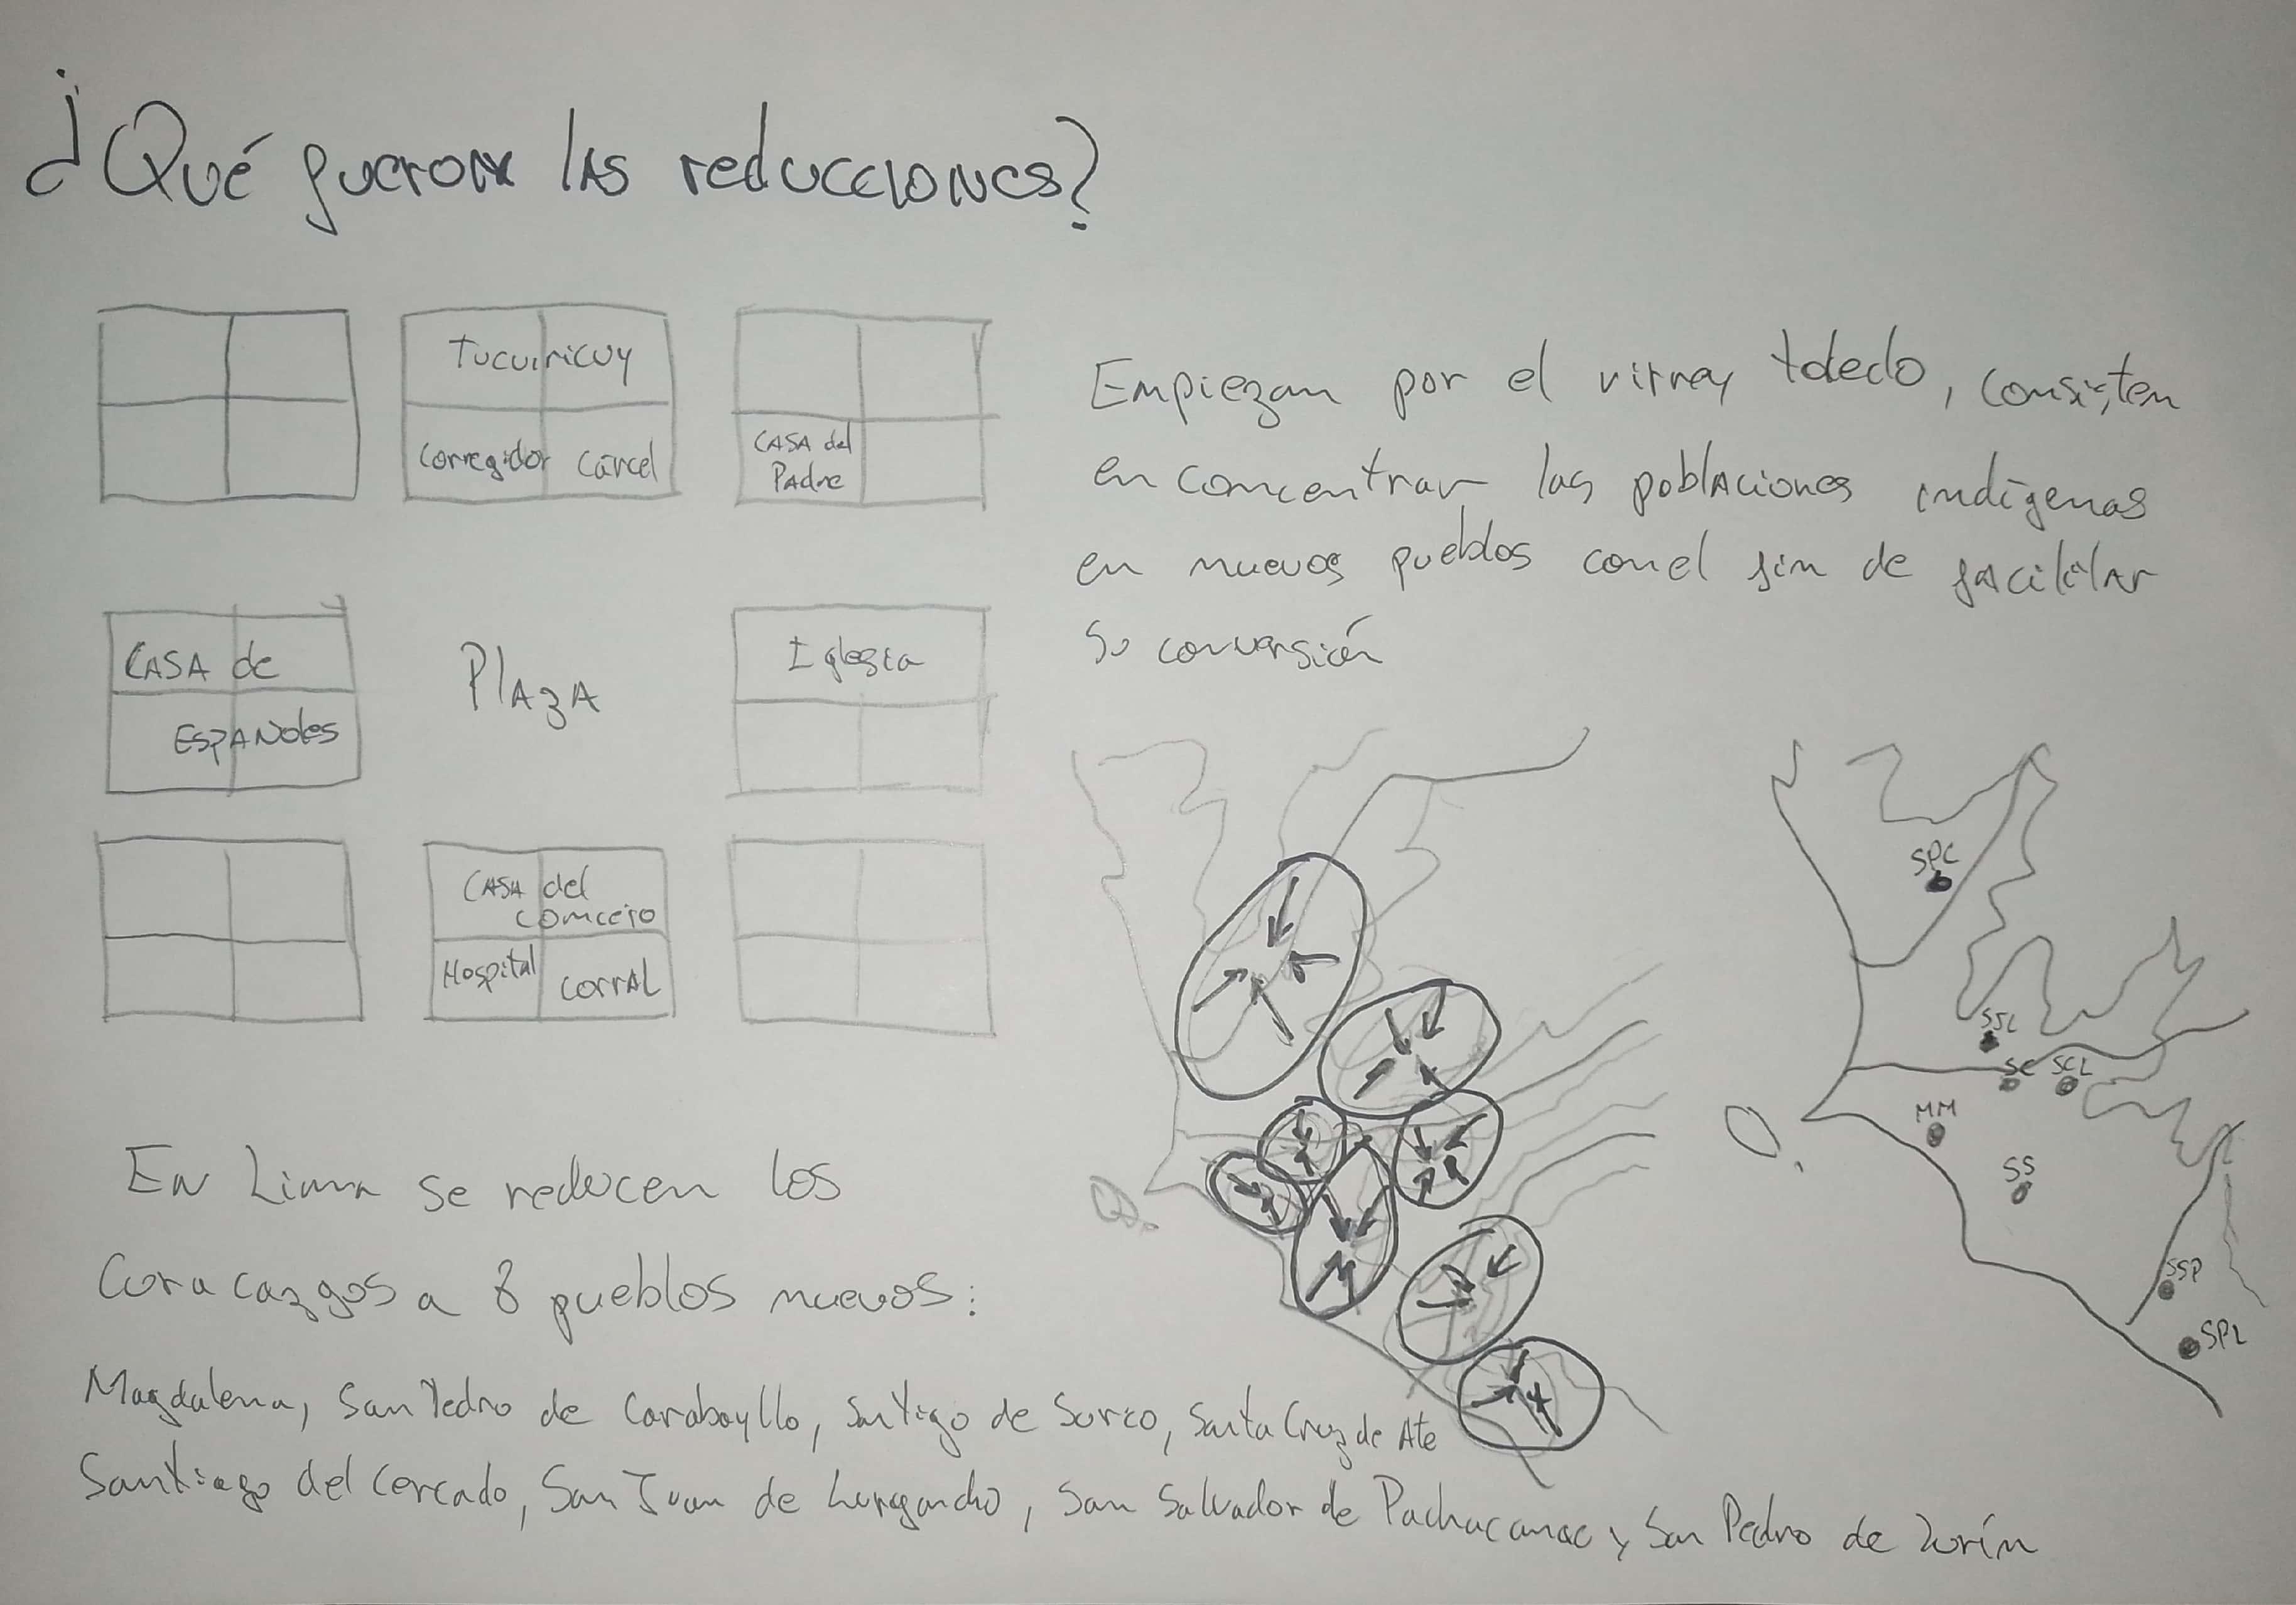 ¿Qué fueron las reducciones?
Tucuiricuy
Corregidor cárcel
CASA del
Padre
CASA de
ESPANoles
PlAzA
Iglesia
CASA del
comcejo
Hospital
corrAL
Empiezan por el virrey toledo, consisten
en concentrar las poblaciones indígenas
en nuevos pueblos con el fin de facilitar
su conversión
SPC
SJL
SC SCL
MM
SS
SSP
SPL
En Lima se reducen los
Curacazgos a 8 pueblos nuevos:
Magdalena, San Pedro de Carabayllo, Sntigo de Surco, Santa Cruz de Ate
Santiago del Cercado, San Juan de Lurigancho, San Salvador de Pachacamac y San Pedro de Lurín